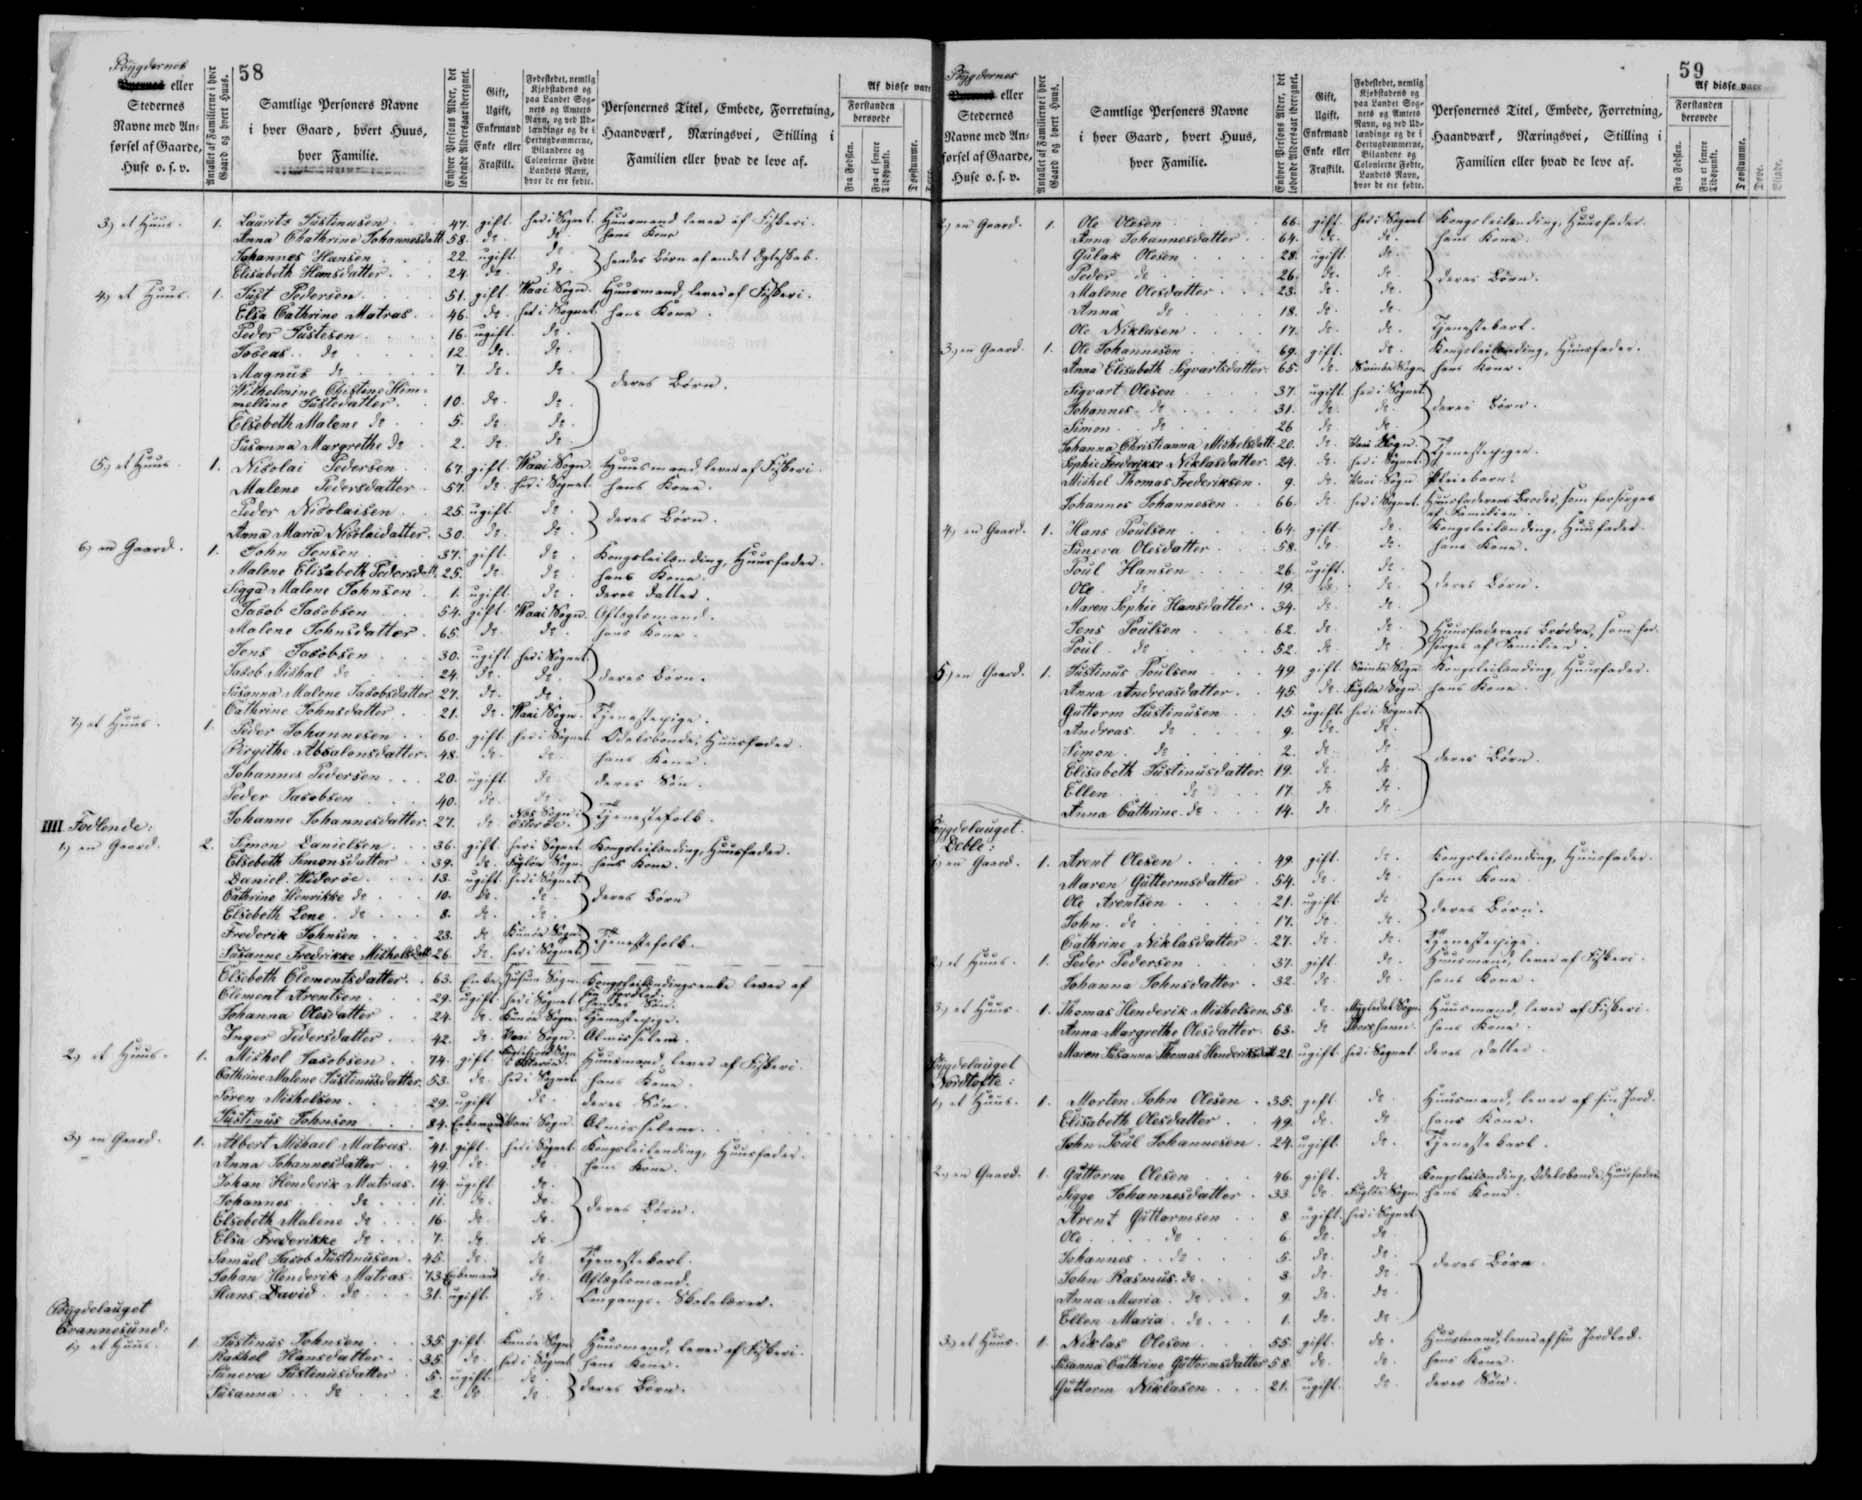 58
Bygdernes
Byernes eller
Stedernes
Navne med An-
førsel af Gaarde,
Huse o. s. v.
Antallet af Familierne i hver
Gaard og hvert Huus.
Samtlige Personers Navne
i hver Gaard, hvert Huus,
hver Familie.
Enhver Persons Alder, det
løbende Aldersaar iberegnet.
Gift,
Ugift,
Enkemand
Enke eller
Fraskilt.
Fødestedet, nemlig
Kjøbstadens og
paa Landet Sog-
nets og Amtets
Navn, og ved Ud-
lændinge og de i
Hertugdømmerne,
Bilandene og
Colonierne Fødte
Landets Navn,
hvor de ere fødte.
Personernes Titel, Embede, Forretning,
Haandværk, Næringsvei, Stilling i
Familien eller hvad de leve af.
Af disse vare
Forstanden
berøvede
Fra Fødslen.
Fra et senere
Tidspunkt.
Døvstumme.
3) et Huus. 1. Laurits Justinusen 47. gift. her i Sognet. Huusmand lever af Fiskeri.
Anna Chathrine Johannesdatt. 58. do. do. hans Kone
Johannes Hansen 22. ugift. do. hendes Børn af andet Ægteskab.
Elisabeth Hansdatter 24. do. do.
4) et Huus. 1. Just Pedersen 51. gift. Waai Sogn. Huusmand, lever af Fiskeri.
Elsa Cathrine Matras 46. do. her i Sognet. hans Kone.
Peder Justesen 16. ugift. do.
Joseas do 12. do. do.
Magnus do 7. do. do. deres Børn.
Wilhelmine Christine Him-
melline Justesdatter 10. do. do.
Elsebeth Malene do 5. do. do.
Susanna Margrethe do 2. do. do.
5) et Huus. 1. Nicolai Pedersen 67. gift. Waai Sogn. Huusmand lever af Fiskeri.
Malene Pedersdatter 57. do. her i Sognet. hans Kone.
Peder Nicolaisen 25. ugift. do. deres Børn.
Anna Maria Nicolaidatter. 30. do. do.
6) en Gaard. 1. John Jensen 37. gift. do. Kongsleilænding, Huusfader.
Malene Elisabeth Pedersdatt. 25. do. do. hans Kone.
Sigga Malene Johnsen 1. ugift. do. deres Datter.
Jacob Jacobsen 54. gift. Waai Sogn. Aftægtsmand.
Malene Johnsdatter. 65. do. do. hans Kone.
Jens Jacobsen 30. ugift. her i Sognet.
Jacob Michal do 24. do. do. deres Børn.
Susanna Malene Jacobsdatter. 27. do. do.
Cathrine Johnsdatter 21. do. Waai Sogn. Tjenestepige.
7) et Huus. 1. Peder Johannesen 60. gift. her i Sognet. Odelsbonde, Huusfader.
Birgithe Absalonsdatter. 48. do. do. hans Kone.
Johannes Pedersen 20. ugift. do. deres Søn.
Peder Jacobsen 40. do. do. Tjenestefolk.
Johanne Johannesdatter. 27. do. Næs Sogn Österöe.
IIII Fodlende:
1) en Gaard. 2. Simon Danielsen 36. gift. her i Sognet. Kongsleilænding, Huusfader.
Elsebeth Simonsdatter 39. do. Fuglöe Sogn. hans Kone.
Daniel Wideröe 13. ugift. her i Sognet.
Cathrine Henrikke do 10. do. do. deres Børn
Elsebeth Lene do 8. do. do.
Frederik Johnsen 23. do. Kunöe Sogn. Tjenestefolk.
Susanne Fredrikke Michelsdatt. 26. do. her i Sognet.
Elsebeth Clementsdatter 63. Enke. Sogn. Kongsleilændingsenke lever af
Clement Arentsen 29. ugift. her i Sognet. hendes Søn.
Johanna Olesdatter 24. do. Kunöe Sogn. Tjenestepige.
Inger Pedersdatter 42. do. Waai Sogn. Almisselem.
2) et Huus. 1. Michel Jacobsen 74. gift. Österöe. Huusmand, lever af Fiskeri.
Cathrine Malene Justinusdatter. 53. do. her i Sognet. hans Kone.
Sören Michelsen 29. ugift. do. deres Søn.
Justinus Johnsen 84. Enkemand Waai Sogn. Almisselem.
3) en Gaard. 1. Albert Michael Matras. 41. gift. her i Sognet. Kongsleilænding, Huusfader.
Anna Johannesdatter 49. do. do. hans Kone.
Johan Henderik Matras. 14. ugift. do.
Johannes do 11. do. do. deres Børn.
Elsebeth Malene do 16. do. do.
Elsa Frederikke do 7. do. do.
Samuel Jacob Justinusen 45. do. do. Tjenestekarl.
Johan Henderik Matras. 73. Enkemand do. Aftægtsmand.
Hans David do 31. ugift. do. Omgangs-Skolelærer.
Bygdelauget
Qvannesund:
1) et Huus. 1. Justinus Johnsen 35. gift. Kunöe Sogn. Huusmand, lever af Fiskeri.
Rachel Hansdatter 35. do. her i Sognet. hans Kone.
Suneva Justinusdatter 5. ugift. do. deres Børn.
Susanna do 2. do. do.
59
Bygdernes
Byernes eller
Stedernes
Navne med An-
førsel af Gaarde,
Huse o. s. v.
Antallet af Familierne i hver
Gaard og hvert Huus.
Samtlige Personers Navne
i hver Gaard, hvert Huus,
hver Familie.
Enhver Persons Alder, det
løbende Aldersaar iberegnet.
Gift,
Ugift,
Enkemand
Enke eller
Fraskilt.
Fødestedet, nemlig
Kjøbstadens og
paa Landet Sog-
nets og Amtets
Navn, og ved Ud-
lændinge og de i
Hertugdømmerne,
Bilandene og
Colonierne Fødte,
Landets Navn,
hvor de ere fødte.
Personernes Titel, Embede, Forretning,
Haandværk, Næringsvei, Stilling i
Familien eller hvad de leve af.
Af disse vare
Forstanden
berøvede
Fra Fødslen.
Fra et senere
Tidspunkt.
Døvstumme.
Døve.
Blinde.
2) en Gaard. 1. Ole Olesen 66. gift. her i Sognet Kongsleilænding, Huusfader.
Anna Johannesdatter 64. do. do. hans Kone.
Gulak Olesen 28. ugift. do.
Peder do 26. do. do. deres Børn.
Malene Olesdatter 23. do. do.
Anna do 18. do. do.
Ole Niklasen 17. do. do. Tjenestekarl.
3) en Gaard. 1. Ole Johannesen 69. gift. do. Kongsleilænding, Huusfader.
Anna Elisabeth Sigvartsdatter. 65. do. Svinöe Sogn. hans Kone.
Sigvart Olesen 37. ugift. her i Sognet
Johannes do 31. do. do. deres Børn.
Simon do 26 do. do.
Johanna Christianna Michelsdatt. 20. do. Waai Sogn. Tjenestepiger.
Sophie Frederikke Niklasdatter. 24. do. her i Sognet.
Michel Thomas Frederiksen 9. do. Waai Sogn Pleiebarn.
Johannes Johannesen 66. do. her i Sognet. Huusfaderens Broder, som forsørges
af Familien.
4) en Gaard. 1. Hans Poulsen 64. gift. do. Kongsleilænding, Huusfader.
Suneva Olesdatter 58. do. do. hans Kone.
Poul Hansen 26. ugift. do.
Ole do 19. do. do. deres Børn.
Maren Sophie Hansdatter. 34. do. do.
Jens Poulsen 62. do. do. Huusfaderens Brødre, som for-
Poul do 52. do. do. sørges af Familien.
5) en Gaard. 1. Justinus Poulsen 49. gift. Svinöe Sogn. Kongsleilænding, Huusfader.
Anna Andreasdatter 45. do. Fuglöe Sogn. hans Kone.
Guttorm Justinusen 15. ugift. her i Sognet.
Andreas do 9. do. do.
Simon do 2. do. do. deres Børn.
Elisabeth Justinusdatter. 19. do. do.
Ellen do 17. do. do.
Anna Cathrine do 14. do. do.
Bygdelauget
Deble:
1) en Gaard. 1. Arent Olesen 49. gift. do. Kongsleilænding, Huusfader.
Maren Guttormsdatter 54. do. do. hans Kone.
Ole Arentsen 21. ugift. do. deres Børn.
John do 17. do. do.
Cathrine Niklasdatter 27. do. do. Tjenestepige.
2) et Huus. 1. Peder Pedersen 37. gift. do. Huusmand, lever af Fiskeri.
Johanna Johnsdatter 32. do. do. hans Kone.
3) et Huus. 1. Thomas Henderik Michelsen. 58. do. Mygledal Sogn. Huusmand, lever af Fiskeri.
Anna Margrethe Olesdatter. 63. do. Thorshavn. hans Kone.
Maren Susanna Thomas Henderiksdatt. 21. ugift. her i Sognet. deres Datter.
Bygdelauget
Nordtofte:
1) et Huus. 1. Morten John Olesen 35. gift. do. Huusmand, lever af sin Jord.
Elisabeth Olesdatter 49. do. do. hans Kone.
John Poul Johannesen. 24. ugift. do. Tjenestekarl.
2) en Gaard. 1. Guttorm Olesen 46. gift. do. Kongsleilænding, Odelsbonde, Huusfader.
Sigge Johannesdatter 33. do. Fuglöe Sogn. hans Kone.
Arent Guttormsen 8. ugift. her i Sognet
Ole do 6. do. do.
Johannes do 5. do. do. deres Børn.
John Rasmus do 3. do. do.
Anna Maria do 9. do. do.
Ellen Maria do 1. do. do.
3) et Huus. 1. Niklas Olesen 55. gift. do. Huusmand, lever af sin Jordlod.
Susanna Cathrine Guttormsdatter 58. do. do. hans Kone.
Guttorm Niklasen 21. ugift. do. deres Søn.